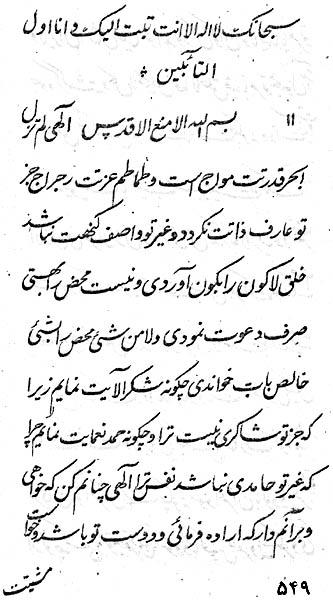 سبحانک لا اله الا انت تبت الیک و انا اول
التائبین *
۱۱ بسم الله الامنع الاقدس الهی لم تزل
ابحر قدرتت مواج است و طماطم عزتت رجراج جز
تو عارف ذاتت نگردد و غیر تو واصف کنهت نباشد
خلق لاکون را بکون آوردی و نیست محض را بهستی
صرف دعوت نمودی و لامن شیٔ محض را بشیٔ
خالص باب خواندی چگونه شکر آلایت نمایم زیرا
که جز تو شاکری نیست ترا و چگونه حمد نعمایت نمایم چرا
که غیر تو حامدی نباشد نفس ترا الهی چنانم کن که خواهی
و برآنم دار که اراده فرمائی و دوست تو باشد و خواست
مشیتت
۵۴۹